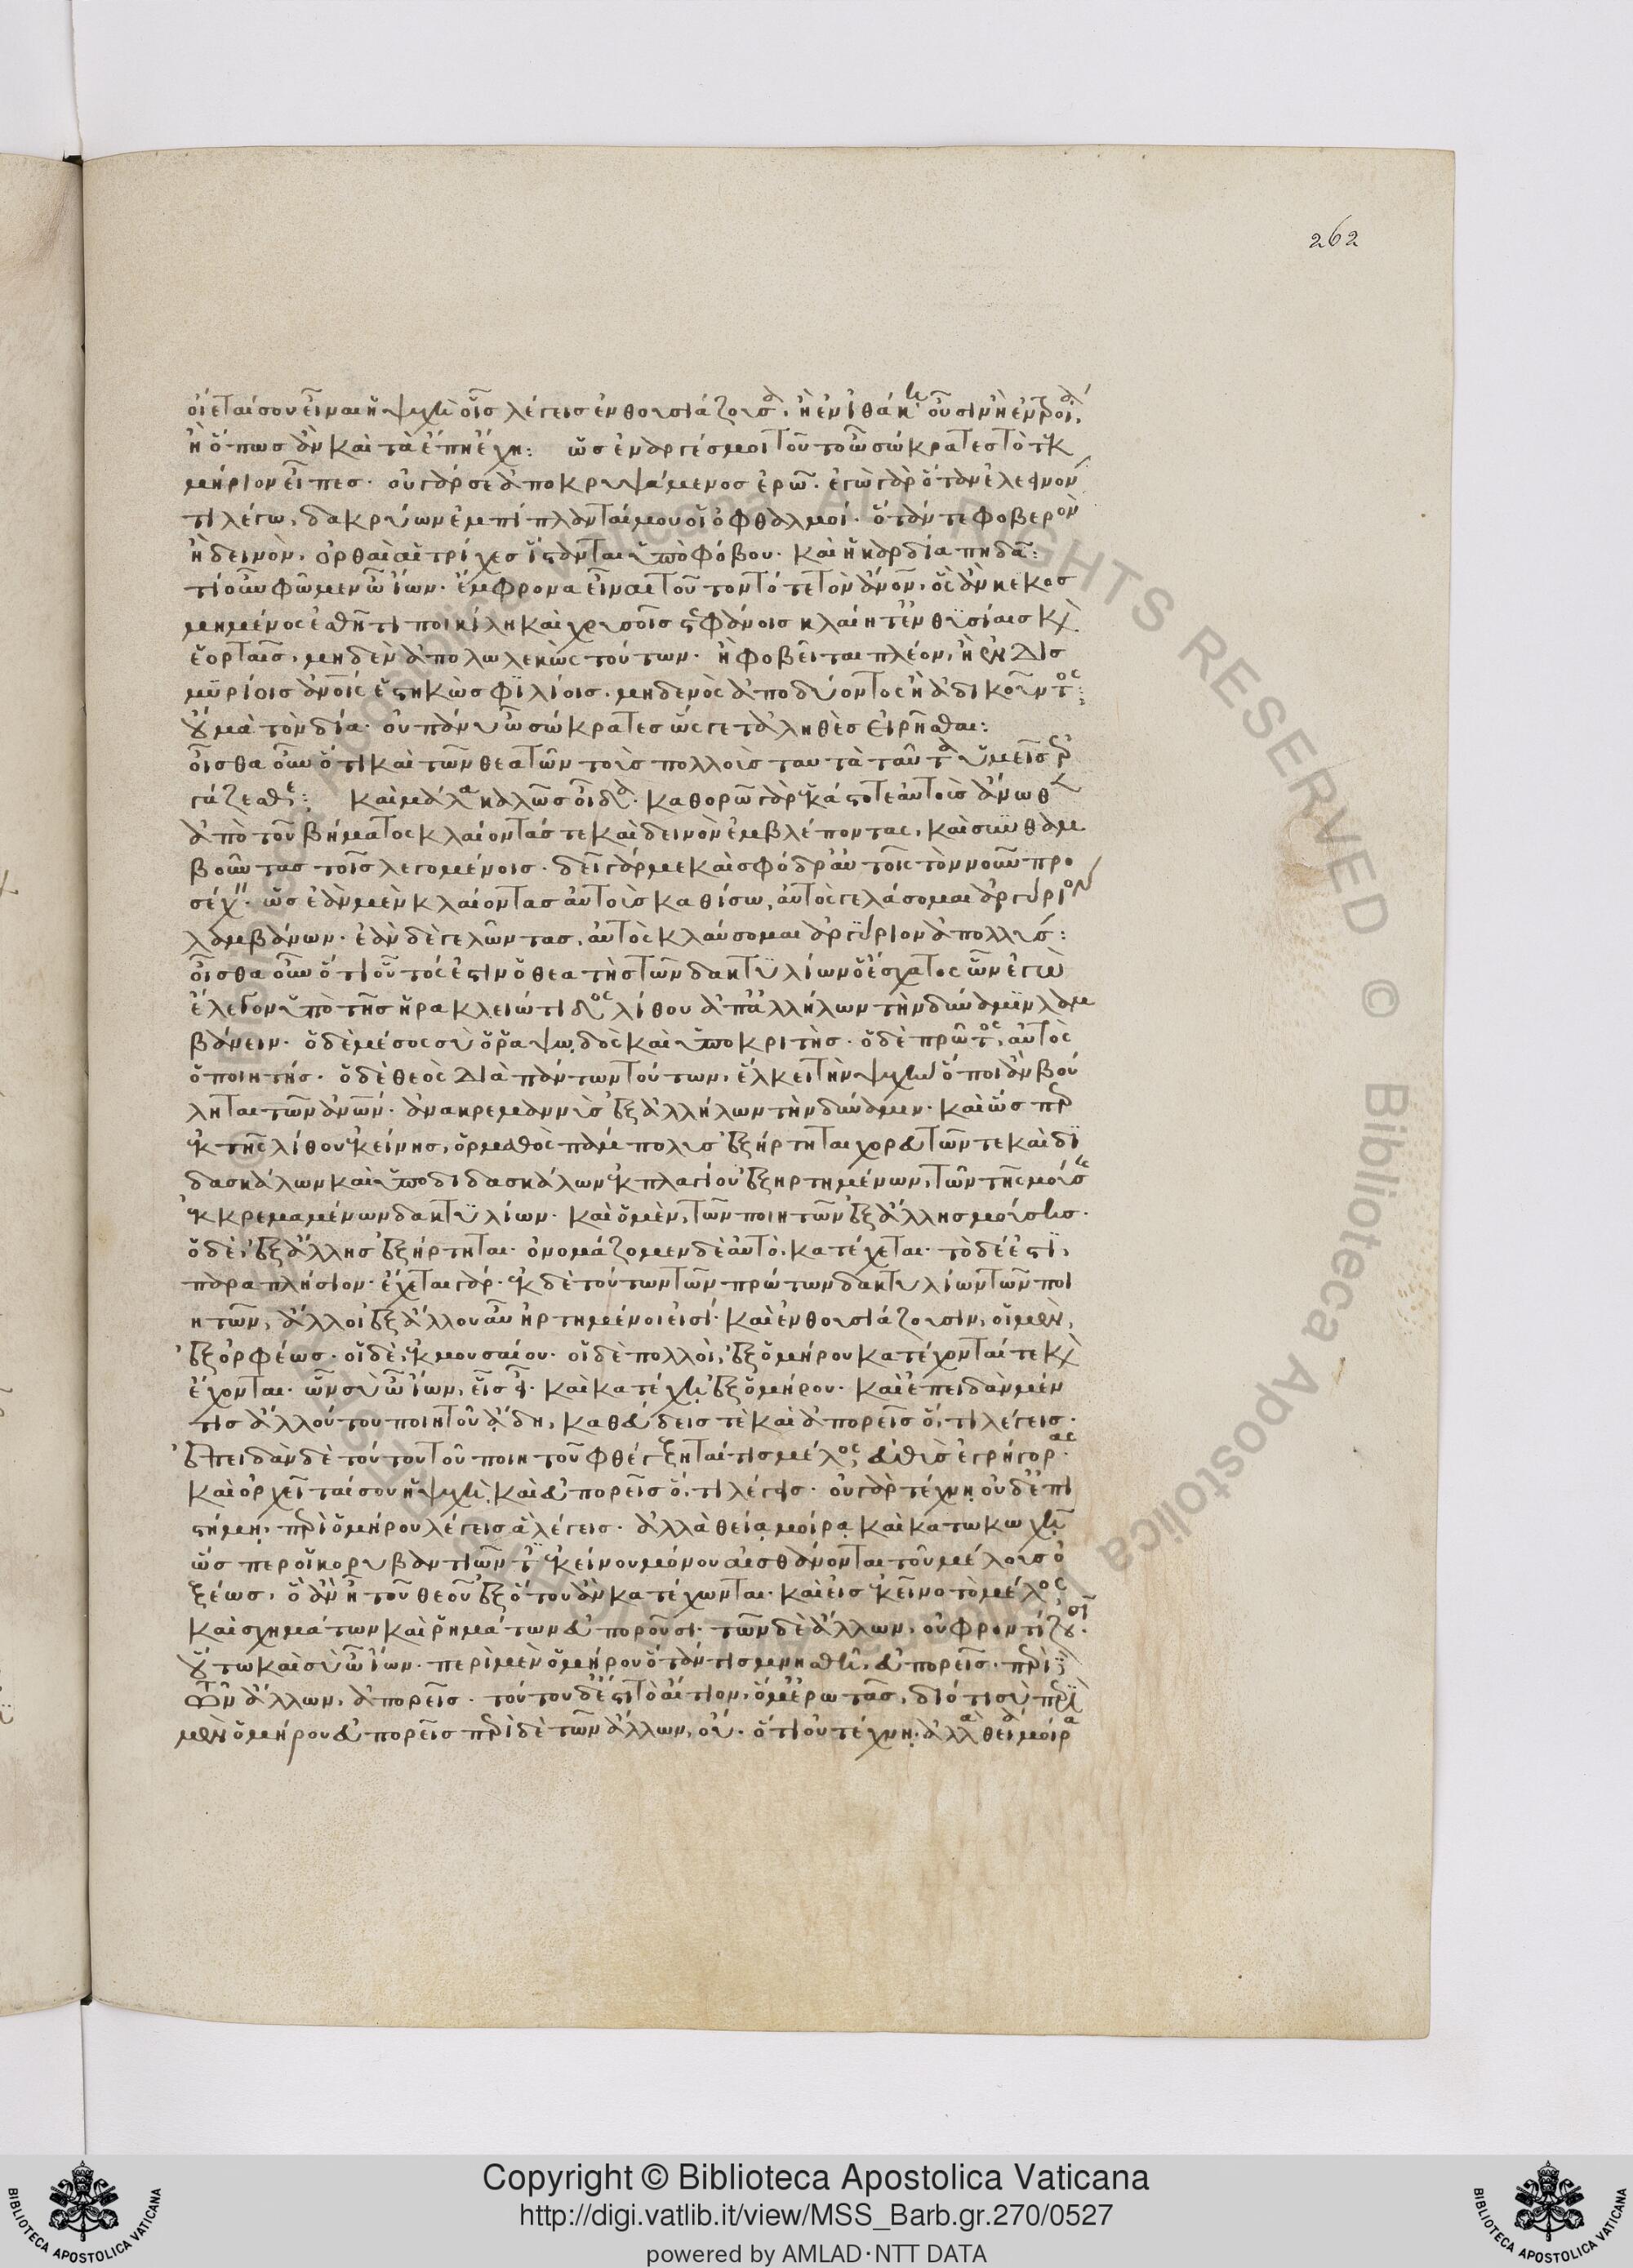 262
οἴεταί σου εἶναι ἡ ψυχὴ οἷς λέγεις ἐνθουσιάζουσα, ἢ ἐν ἰθάκη οὖσιν ἢ ἐν τροία,
ἢ ὅπως ἂν καὶ τὰ ἔπη ἔχη: ὡς ἐναργές μοι τοῦτο ὦ σώκρατες τὸ τεκ
μήριον εἶπες. οὐ γάρ σε ἀποκρυψάμενος ἐρῶ. ἐγὼ γὰρ ὅταν ἐλεεινόν
τι λέγω, δακρύων ἐμπίπλανταί μου οἱ ὀφθαλμοί. ὅταν τε φοβερὸν
ἢ δεινὸν, ὀρθαὶ αἱ τρίχες ἵστανται ὑπὸ φόβου. καὶ ἡ καρδία πηδᾶ:
τί οὖν φῶμεν ὦ ἴων. ἔμφρονα εἶναι τοῦτον τότε τὸν ἄνον, ὃς ἂν κεκοσ
μημένος ἐσθῆτι ποικίλη καὶ χρυσοῖς στεφάνοις κλαίη τ' ἐν θυσίαις καὶ
ἑορταῖς, μηδὲν ἀπολωλεκὼς τούτων. ἢ φοβεῖται πλέον, ἢ ἐν δισ
μυρίοις ἀνοις ἑστηκὼς φιλίοις. μηδενὸς ἀποδύοντος ἢ ἀδικοῦντος:
οὐ μὰ τὸν δία. οὐ πάνυ ὦ σώκρατες ὥς γε τἀληθὲς εἰρῆσθαι:
οἶσθα οὖν ὅτι καὶ τῶν θεατῶν τοὺς πολλοὺς ταυτὰ ταῦτα ὑμεῖς ἐρ
γάζεσθε: καὶ μάλα καλῶς οἶδα. καθορῶ γὰρ ἑκάστοτε αὐτοὺς ἄνωθεν
ἀπὸ τοῦ βήματος κλαίοντάς τε καὶ δεινὸν ἐμβλέποντας, καὶ συνθαμ
βοῦντας τοῖς λεγομένοις. δεῖ γάρ με καὶ σφόδρ' αὐτοῖς τὸν νοῦν προ
σέχειν. ὡς ἐὰν μὲν κλαίοντας αὐτοὺς καθίσω, αὐτὸς γελάσομαι ἀργύριον
λαμβάνων. ἐὰν δὲ γελῶντας, αὐτὸς κλαύσομαι ἀργύριον ἀπολλύς:
οἶσθα οὖν ὅτι οὗτός ἐστιν ὁ θεατὴς τῶν δακτυλίων ὁ ἔσχατος ὧν ἐγὼ
ἔλεγον ὑπὸ τῆς ἡρακλειώτιδος λίθου ἀπ' ἀλλήλων τὴν δύναμιν λαμ
βάνειν. ὁ δὲ μέσος σὺ ὁ ῥαψωδὸς καὶ ὑποκριτὴς. ὁ δὲ πρῶτος, αὐτὸς
ὁ ποιητής. ὁ δὲ θεὸς διὰ πάντων τούτων, ἕλκει τὴν ψυχὴν ὅποι ἂν βού
ληται τῶν ἀνων. ἀνακρεμαννὺς ἐξ ἀλλήλων τὴν δύναμιν. καὶ ὥσπερ
ἐκ τῆς λίθου ἐκείνης, ὁρμαθὸς πάμπολυς ἐξήρτηται χορευτῶν τε καὶ δι
δασκάλων καὶ ὑποδιδασκάλων ἐκ πλαγίου ἐξηρτημένων, τῶν τῆς μούσης
ἐκκρεμαμένων δακτυλίων. καὶ ὁ μὲν, τῶν ποιητῶν ἐξ ἄλλης μούσης.
ὁ δὲ, ἐξ ἄλλης ἐξήρτηται. ὀνομάζομεν δὲ αὐτὸ, κατέχεται. τὸ δέ ἐστι,
παραπλήσιον. ἔχεται γάρ. ἐκ δὲ τούτων τῶν πρώτων δακτυλίων τῶν ποι
ητῶν, ἄλλοι ἐξ ἄλλου αὖ ἠρτημένοι εἰσί. καὶ ἐνθουσιάζουσιν, οἱ μὲν,
ἐξ ὀρφέως. οἱ δὲ, ἐκ μουσαίου. οἱ δὲ πολλοὶ, ἐξ ὁμήρου κατέχονταί τε καὶ
ἔχονται. ὧν σὺ ὦ ἴων, εἷς εἶ. καὶ κατέχη ἐξ ὁμήρου. καὶ ἐπειδὰν μέν
τις ἄλλου του ποιητοῦ ἄδη, καθεύδεις τὲ καὶ ἀπορεῖς ὅ, τι λέγεις.
ἐπειδὰν δὲ τούτου τοῦ ποιητοῦ φθέγξηταί τις μέλος, εὐθὺς ἐγρήγορας.
καὶ ὀρχεῖταί σου ἡ ψυχὴ, καὶ εὐπορεῖς ὅ, τι λέγης. οὐ γὰρ τέχνη οὐδ' ἐπι
στήμη, περὶ ὁμήρου λέγεις ἃ λέγεις. ἀλλὰ θεία μοίρα καὶ κατωκωχῆ
ὥσπερ οἱ κορυβαντιῶντες ἐκείνου μόνου αἰσθάνονται τοῦ μέλους ὀ
ξέως, ὃ ἂν ἦ τοῦ θεοῦ ἐξ ὅτου ἂν κατέχωνται. καὶ εἰς ἐκεῖνο τὸ μέλος
καὶ σχημάτων καὶ ῥημάτων εὐποροῦσι. τῶν δὲ ἄλλων, οὐ φροντίζουσι.
οὕτω καὶ σὺ ὦ ἴων. περὶ μὲν ὁμήρου ὅταν τις μνησθῆ, εὐπορεῖς. περὶ δὲ
τῶν ἄλλων, ἀπορεῖς. τούτου δ' ἐστὶ τὸ αἴτιον, ὅ μ' ἐρωτᾶς, διότι σὺ περὶ
μὲν ὁμήρου εὐπορεῖς περὶ δὲ τῶν ἄλλων, οὔ. ὅτι οὐ τέχνη. ἀλλὰ θεία μοίρα
ALL RIGHTS RESERVED © Biblioteca Apostolica Vaticana
Copyright © Biblioteca Apostolica Vaticana
http://digi.vatlib.it/view/MSS_Barb.gr.270/0527
powered by AMLAD·NTT DATA
BIBLIOTECA APOSTOLICA VATICANA
BIBLIOTECA APOSTOLICA VATICANA